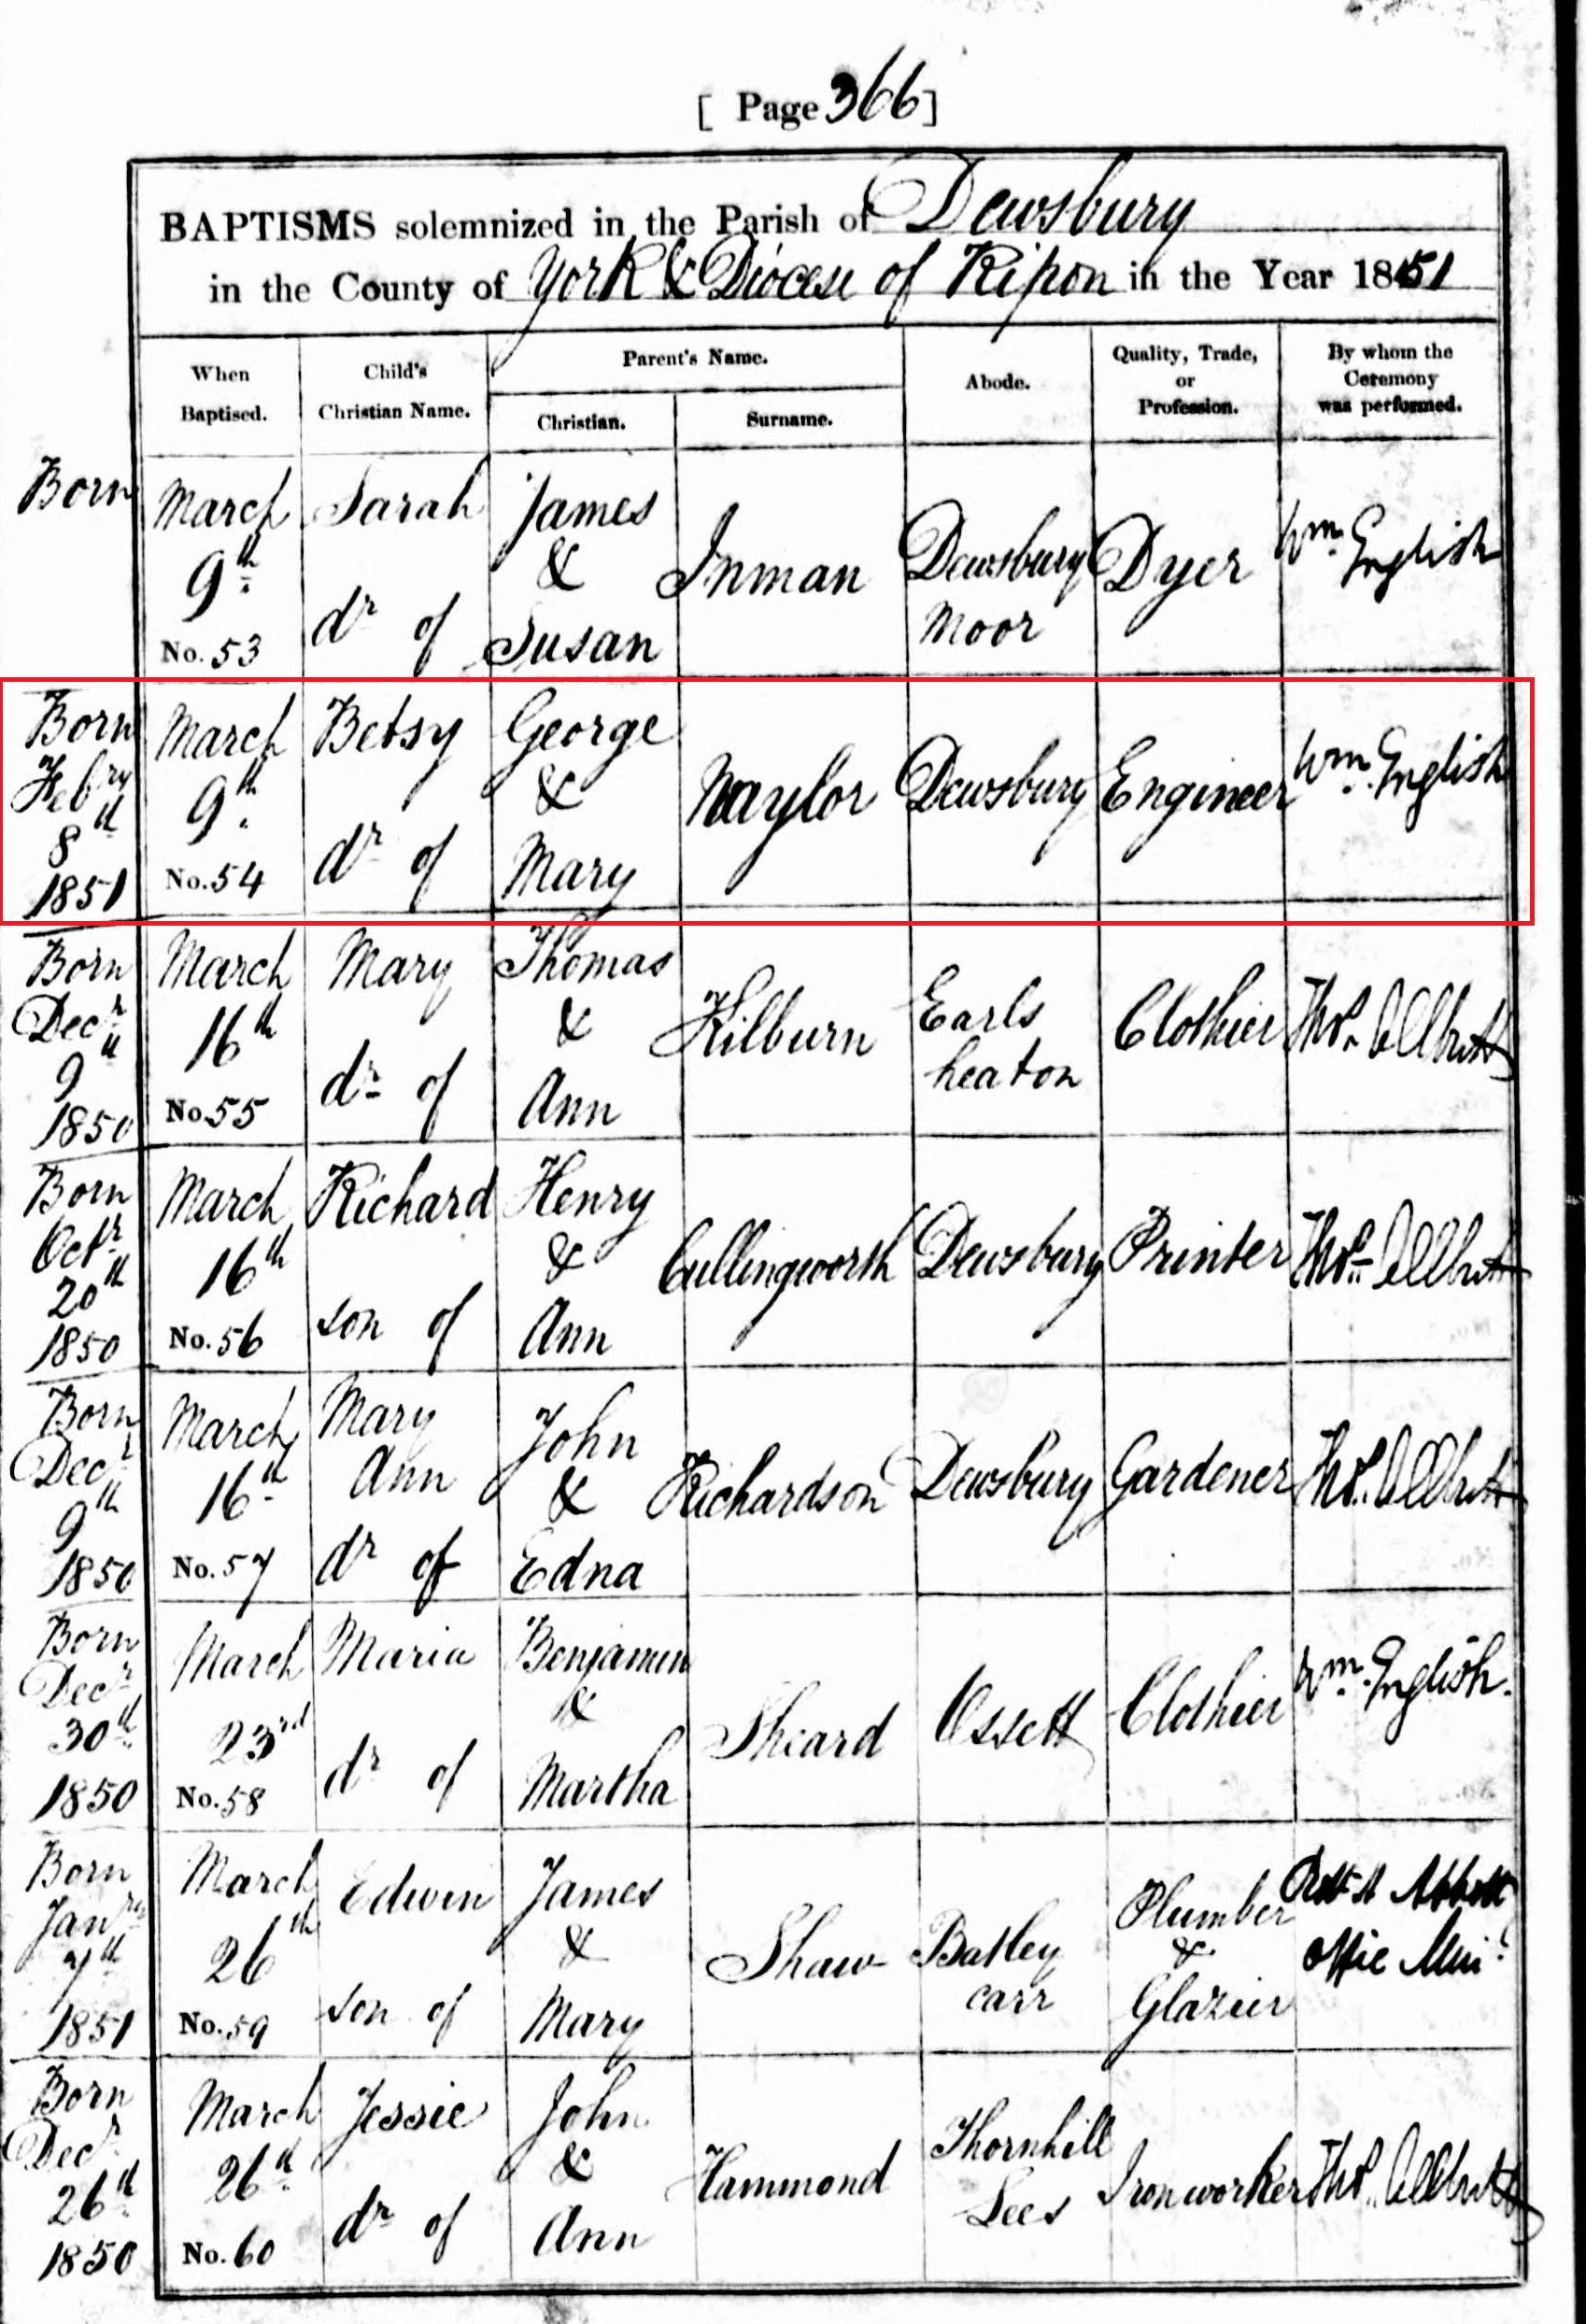 [ Page 366 ]
BAPTISMS solemnized in the Parish of Dewsbury
in the County of York & Diocese of Ripon in the Year 1851
When Baptised.
Child's Christian Name.
Parent's Name.
Christian.
Surname.
Abode.
Quality, Trade, or Profession.
By whom the Ceremony was performed.
Born
March 9th No. 53
Sarah dr of
James & Susan
Inman
Dewsbury Moor
Dyer
Wm. English
Born Febry 8th 1851
March 9th No. 54
Betsy dr of
George & Mary
Naylor
Dewsbury
Engineer
Wm. English
Born Decr 9th 1850
March 16th No. 55
Mary dr of
Thomas & Ann
Kilburn
Earls heaton
Clothier
Thos. Allbutt
Born Octr 20th 1850
March 16th No. 56
Richard son of
Henry & Ann
Cullingworth
Dewsbury
Printer
Thos. Allbutt
Born Decr 9th 1850
March 16th No. 57
Mary Ann dr of
John & Edna
Richardson
Dewsbury
Gardener
Thos. Allbutt
Born Decr 30th 1850
March 23rd No. 58
Maria dr of
Benjamin & Martha
Sheard
Ossett
Clothier
Wm. English.
Born Janry 7th 1851
March 26th No. 59
Edwin son of
James & Mary
Shaw
Batley carr
Plumber & Glazier
Abbott offic Minr
Born Decr 26th 1850
March 26th No. 60
Jessie dr of
John & Ann
Hammond
Thornhill Lees
Ironworker
Thos. Allbutt